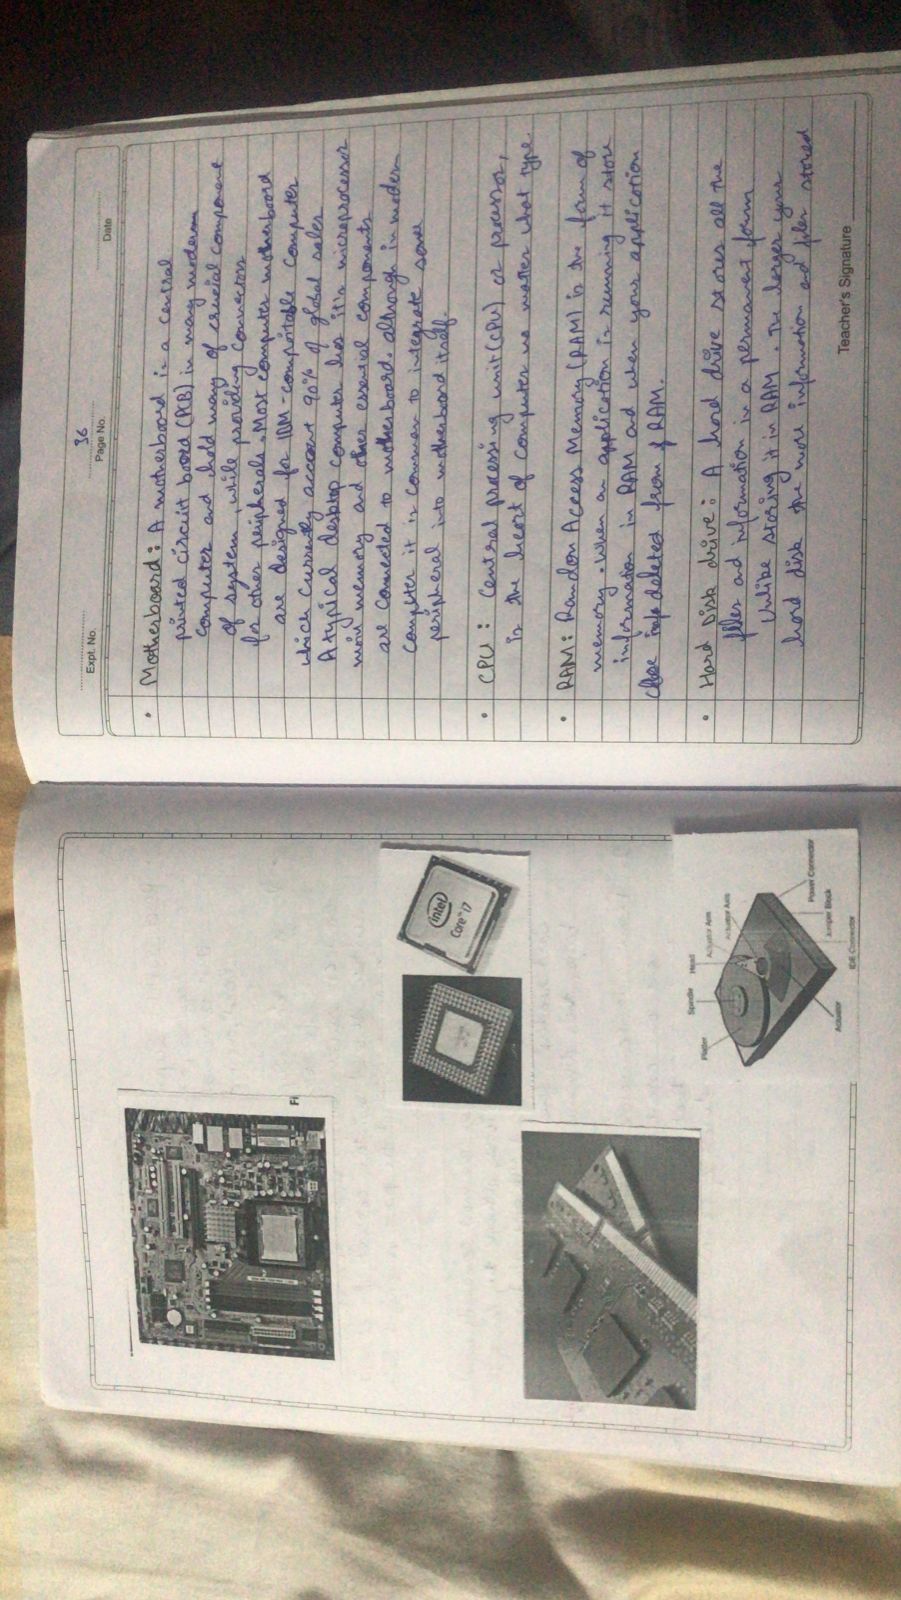 Fi
intel
Core™ i7
Spindle
Head
Platter
Actuator Arm
Actuator Axis
Power Connector
Jumper Block
Actuator
IDE Connector
36
Expt. No.
Page No.
Date
• Motherboard: A motherboard is a central
printed circuit board (PCB) in many modern
computer and hold many of crucial component
of system, while providing connectors
for other peripherals. Most computer motherboard
are designed for IBM-compatible computer
which currently account 90% of global sales
A typical desktop computer has it's microprocessor
main memory and other essential components
are connected to motherboard. although in modern
computer it is common to integrate some
peripheral into motherboard itself.
• CPU: Central processing unit (CPU) or processor,
is the heart of computer no matter what type.
• RAM: Random Access Memory (RAM) is the form of
memory. When an application is running it store
information in RAM and when your application
close info deleted from RAM.
• Hard Disk drive: A hard drive stores all the
files and information in a permanent form
Unlike storing it in RAM. The larger your
hard disk the more information and files stored
Teacher's Signature